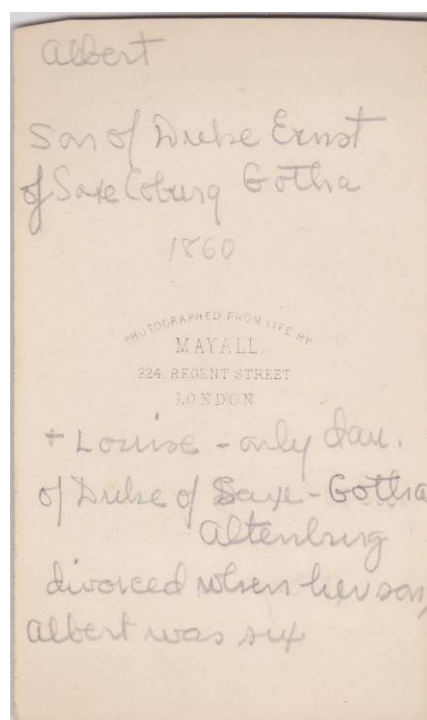 Albert
Son of Duke Ernst
of Saxe Coburg Gotha
1860
PHOTOGRAPHED FROM LIFE BY
MAYALL
224, REGENT STREET
LONDON
+ Louise - only dau.
of Duke of Saxe - Gotha
Altenburg
divorced when her son,
Albert was six